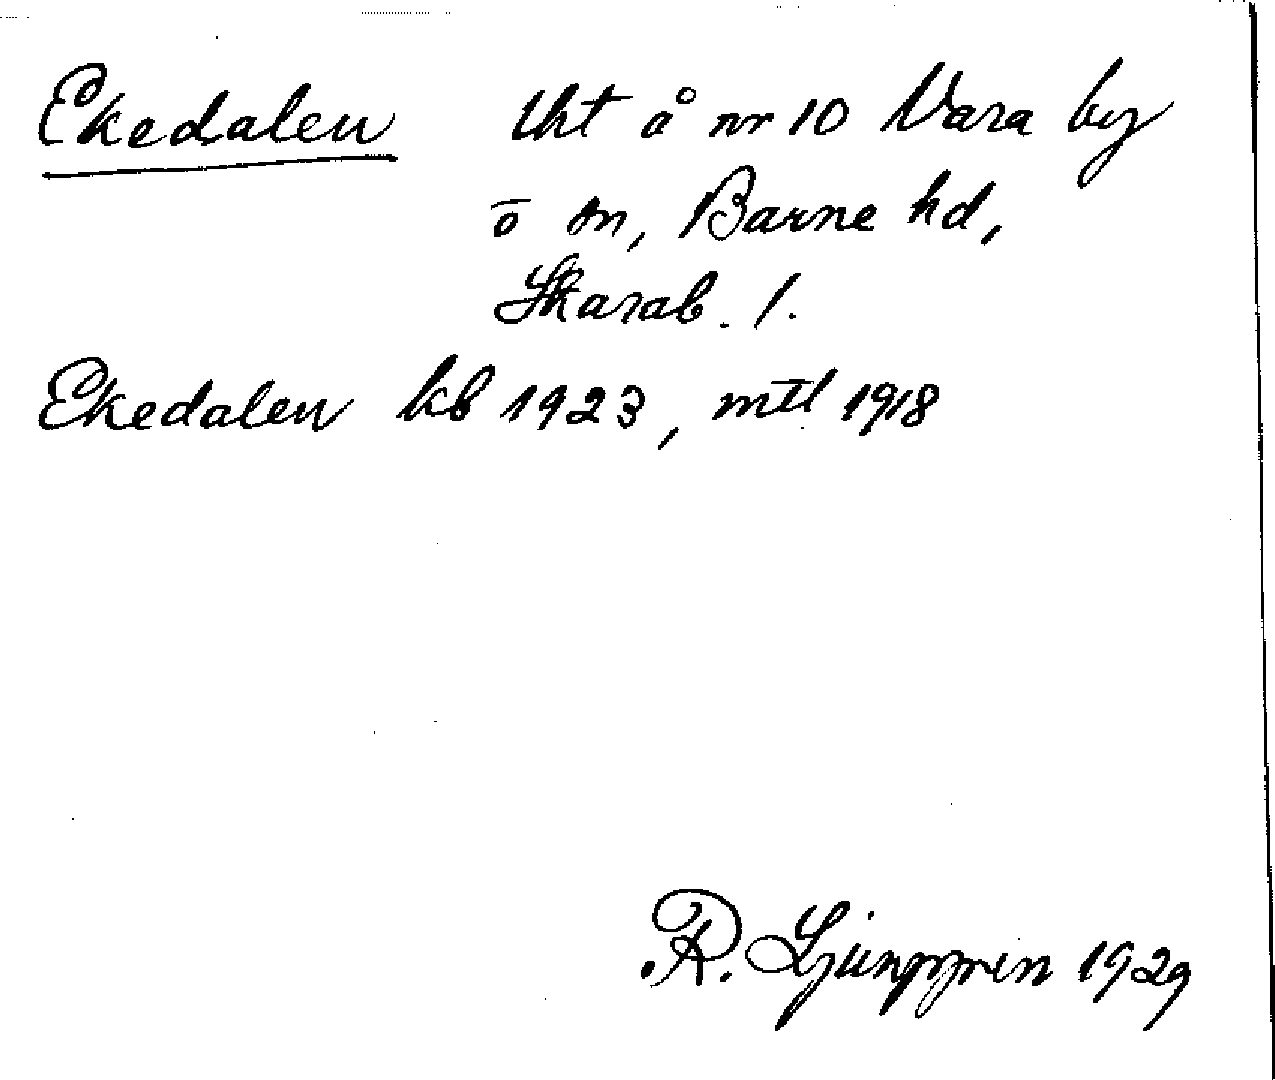 Ekedalen lht å nr 10 Vara by
o sn, Barne hd,
Skarab. l.
Ekedalen kb 1923, mtl 1918
R. Ljunggren 1929